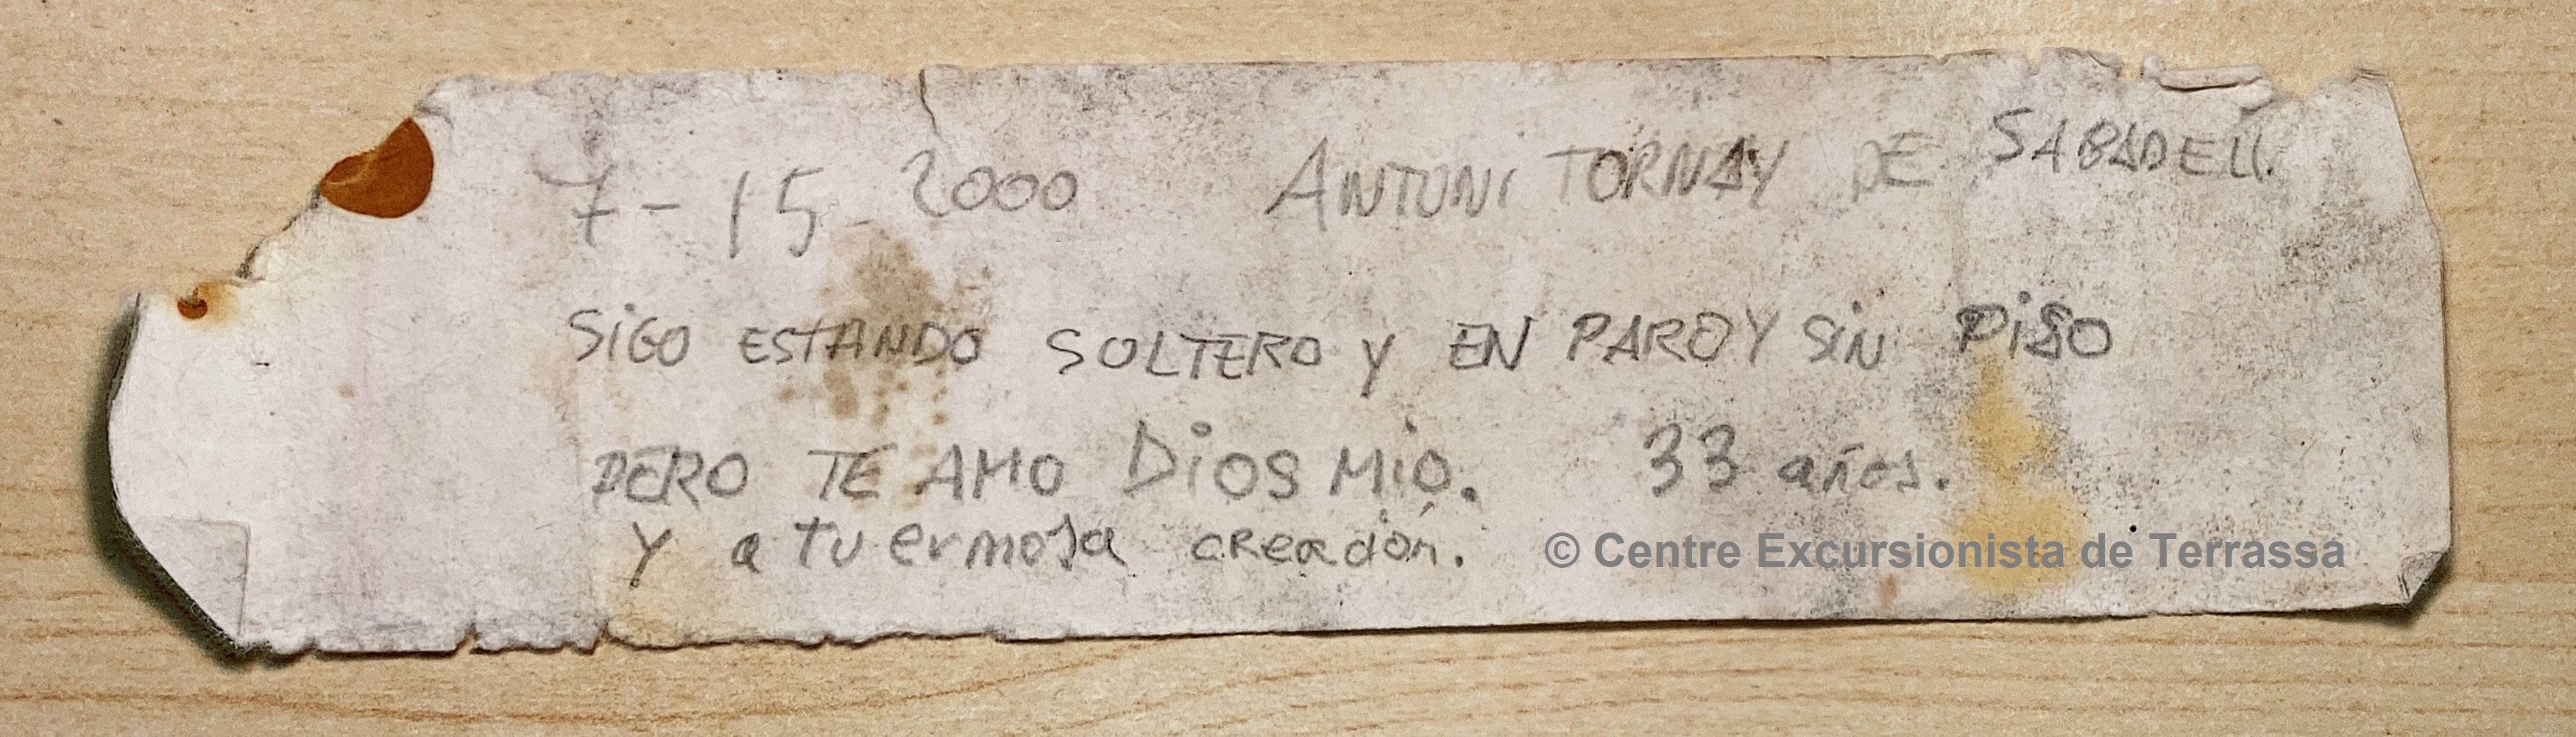 7-15-2000 ANTONI TORNAY DE SABADELL.
SiGO ESTANDO SOLTERO Y EN PARO Y SiN PiSO
PERO TE AMO DiOS MiO. 33 años.
Y a Tu ermosa cReación.
© Centre Excursionista de Terrassa